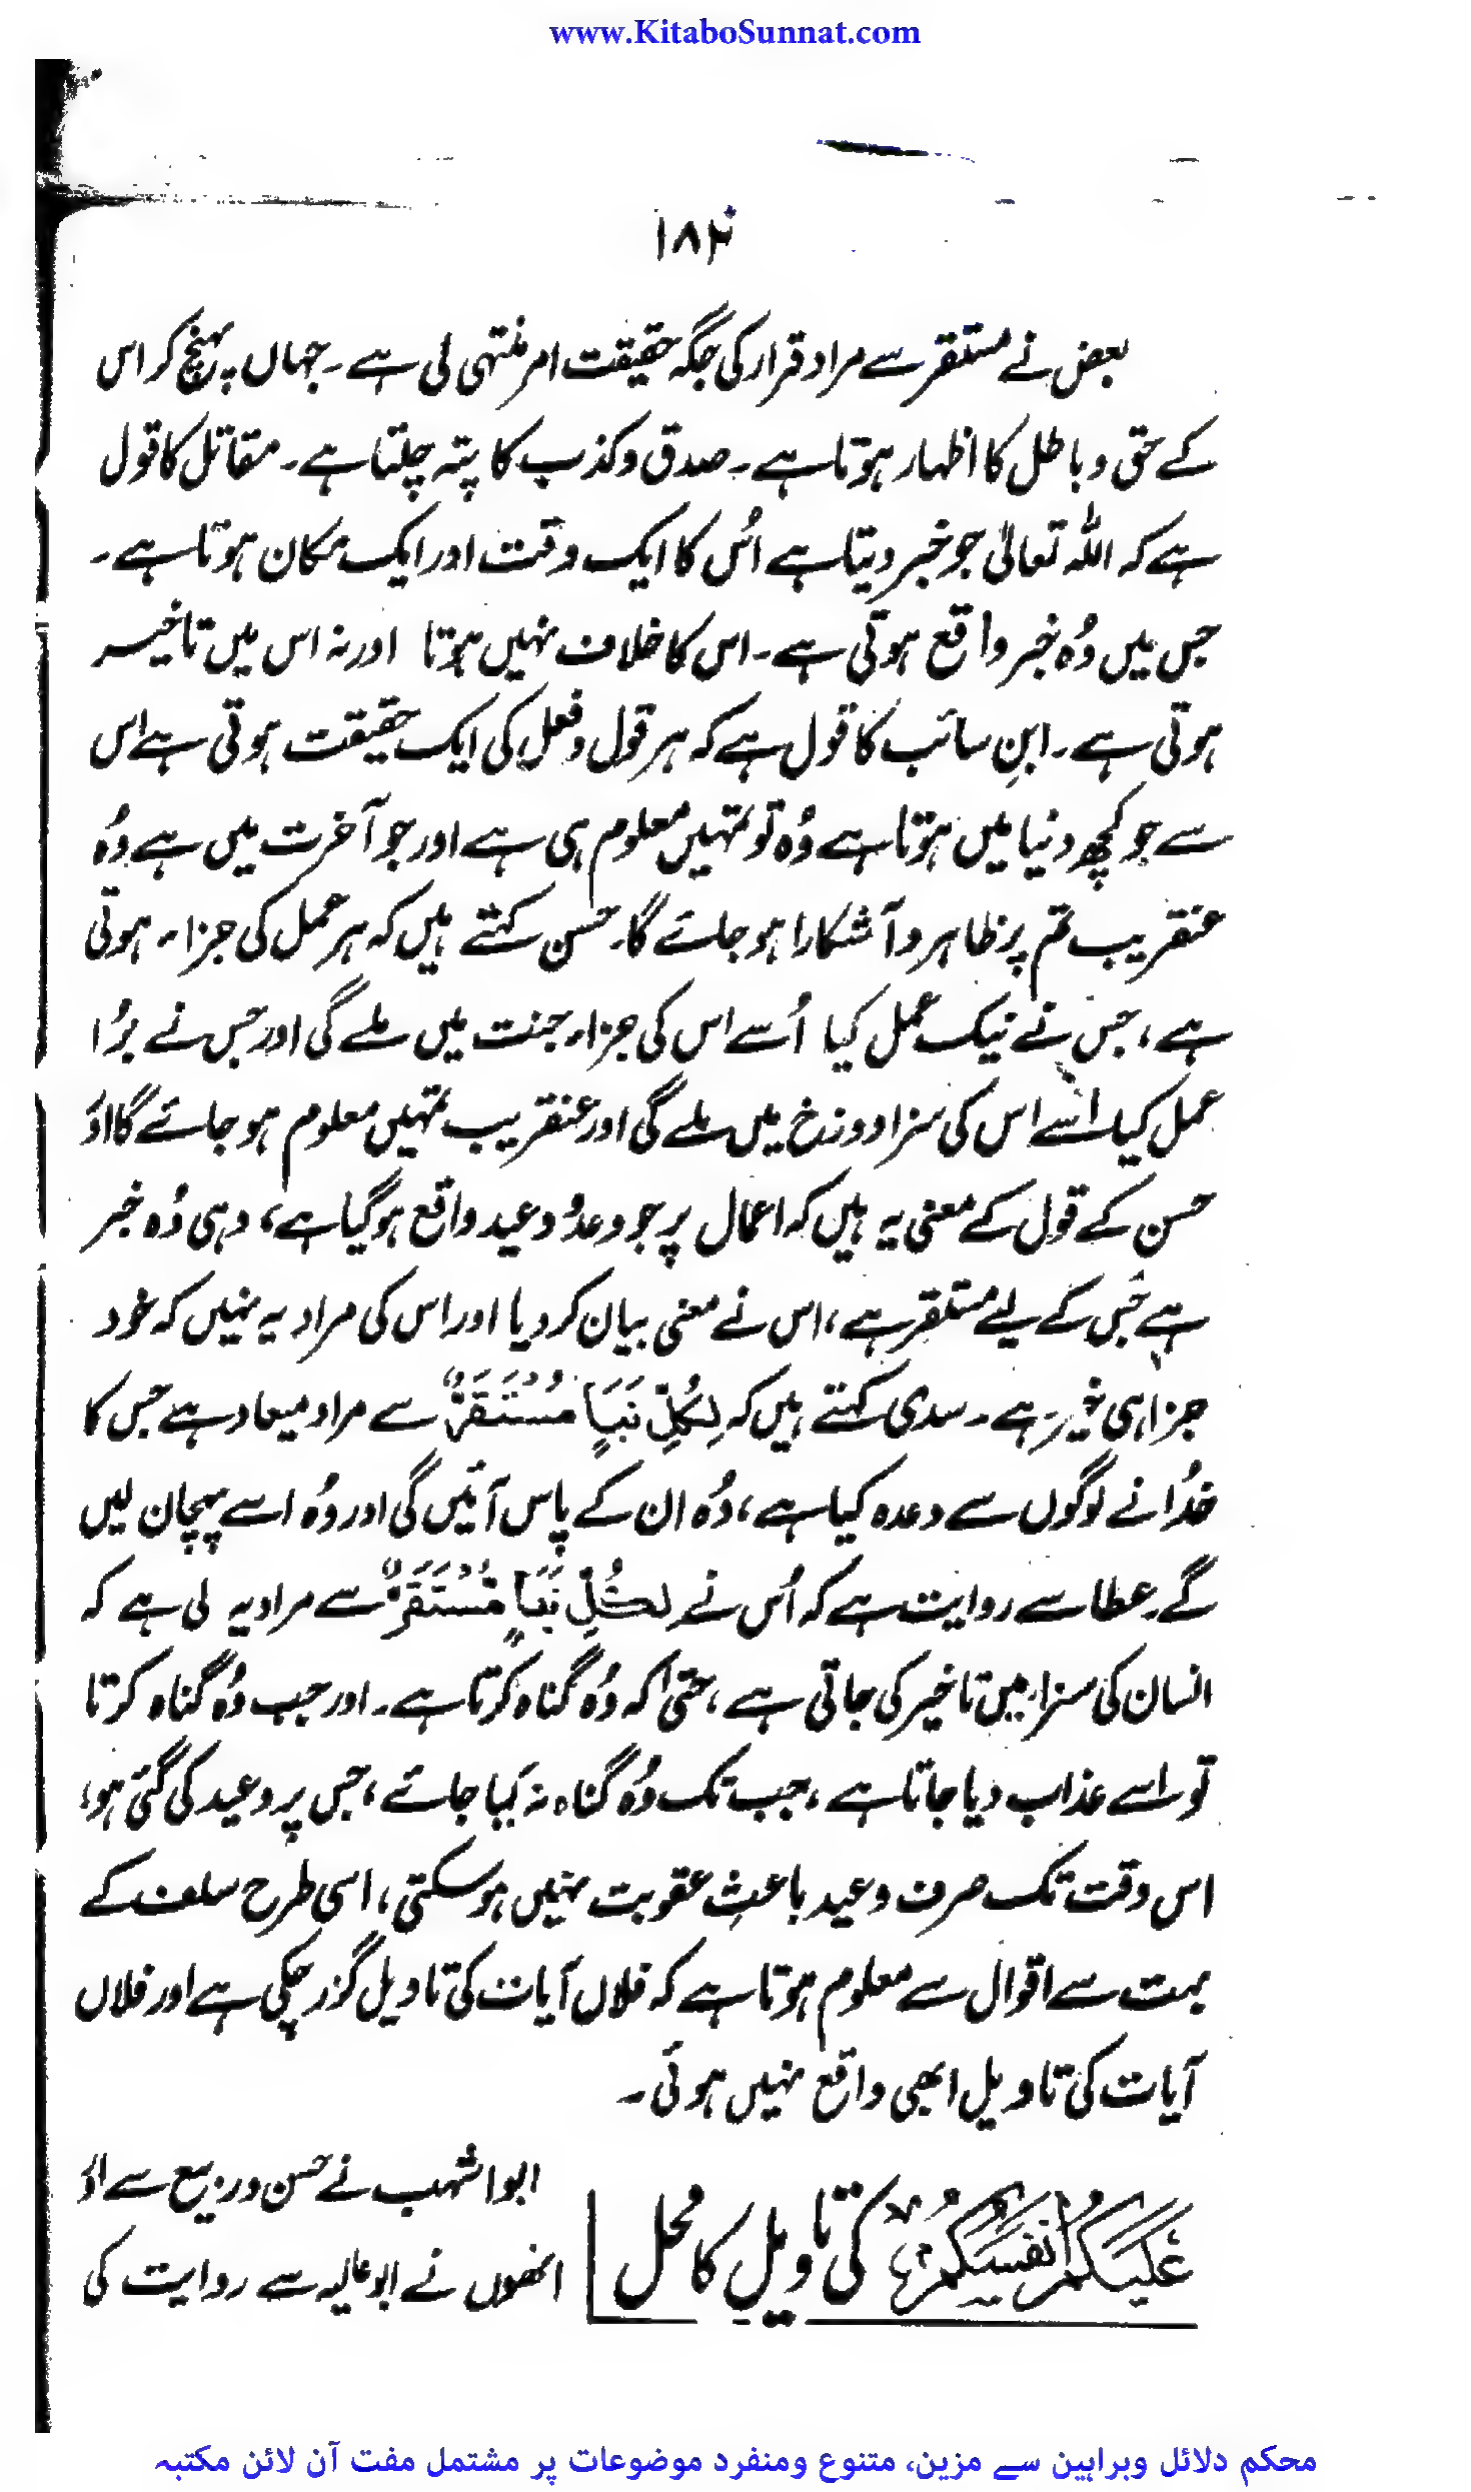 www.KitaboSunnat.com
۱۸۴
بعض نے مستقر سے مراد قرار کی جگہ حقیقت امر منتہی لی ہے۔ جہاں پہنچ کر اس
کے حق و باطل کا اظہار ہوتا ہے۔ صدق و کذب کا پتہ چلتا ہے۔ مقاتل کا قول
ہے کہ اللہ تعالیٰ جو خبر دیتا ہے اُس کا ایک وقت اور ایک مکان ہوتا ہے۔
جس میں وُہ خبر واقع ہوتی ہے۔ اس کا خلاف نہیں ہوتا اور نہ اس میں تاخیر
ہوتی ہے۔ ابنِ سائب کا قول ہے کہ ہر قول و فعل کی ایک حقیقت ہوتی ہے اس
سے جو کچھ دنیا میں ہوتا ہے وُہ تو تمہیں معلوم ہی ہے اور جو آخرت میں ہے وُہ
عنقریب تم پر ظاہر و آشکارا ہو جائے گا۔ حسن کہتے ہیں کہ ہر عمل کی جزاء ہوتی
ہے، جس نے نیک عمل کیا اُسے اس کی جزاء جنت میں ملے گی اور جس نے بُرا
عمل کیا اسے اس کی سزا دوزخ میں ملے گی اور عنقریب تمہیں معلوم ہو جائے گا اور
حسن کے قول کے معنی یہ ہیں کہ اعمال پر جو وعدُ وعید واقع ہو گیا ہے، وہی وُہ خبر
ہے جس کے لیے مستقر ہے، اس نے معنی بیان کر دیا اور اس کی مراد یہ نہیں کہ خود
جزا ہی خبر ہے۔ سدی کہتے ہیں کہ لِکُلِّ نَبَاٍ مُسْتَقَرٌّ سے مراد میعاد ہے جس کا
خدُا نے لوگوں سے وعدہ کیا ہے، وُہ ان کے پاس آئیں گی اور وُہ اسے پہچان لیں
گے۔ عطا سے روایت ہے کہ اُس نے لِکُلِّ نَبَاٍ مُسْتَقَرٌّ سے مراد یہ لی ہے کہ
انسان کی سزا میں تاخیر کی جاتی ہے، حتیٰ کہ وُہ گناہ کرتا ہے۔ اور جب وُہ گناہ کرتا
تو اسے عذاب دیا جاتا ہے، جب تک وُہ گناہ نہ کیا جائے، جس پر وعید کی گئی ہو،
اس وقت تک صرف وعید باعثِ عقوبت نہیں ہو سکتی، اسی طرح سلف کے
بہت سے اقوال سے معلوم ہوتا ہے کہ فلاں آیات کی تاویل گزر چکی ہے اور فلاں
آیات کی تاویل ابھی واقع نہیں ہوئی۔
عَلَیْکُمْ اَنْفُسَکُمْ کی تاویل کا محل
ابوا شہب نے حسن و ربیع سے اور
انھوں نے ابو عالیہ سے روایت کی
محکم دلائل وبراہین سے مزین، متنوع ومنفرد موضوعات پر مشتمل مفت آن لائن مکتبہ